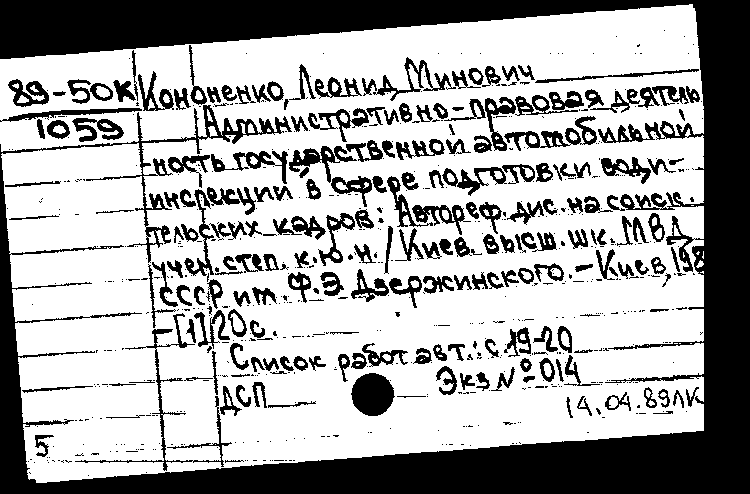 89-50К Кононенко, Леонид Минович
1059 Административно-правовая деятель
-ность государственной автомобильной
инспекции в сфере подготовки води-
тельских кадров: Автореф. дис. на соиск.
учен. степ. к.ю.н. / Киев. высш. шк. МВД
СССР им. Ф.Э. Дзержинского. – Киев, 198
– [1], 20 с.
Список работ авт.: с. 19-20
ДСП Экз № 014
14.04.89ЛК
5